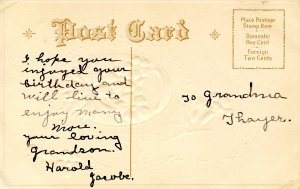 Post Card
Place Postage
Stamp Here
Domestic
One Cent
Foreign
Two Cents
I hope you
injoyed your
birthday and
will live to
enjoy many
more.
your loving
Grandson.
Harold
Jacobs.
To Grandma
Thayer.